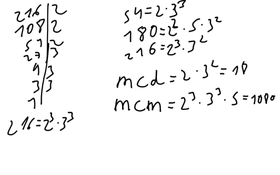 216|2
108|2
54|2
27|3
9|3
3|3
1
216=2³·3³
54=2·3³
180=2²·5·3²
216=2³·3²
mcd=2·3²=18
mcm=2³·3³·5=1080